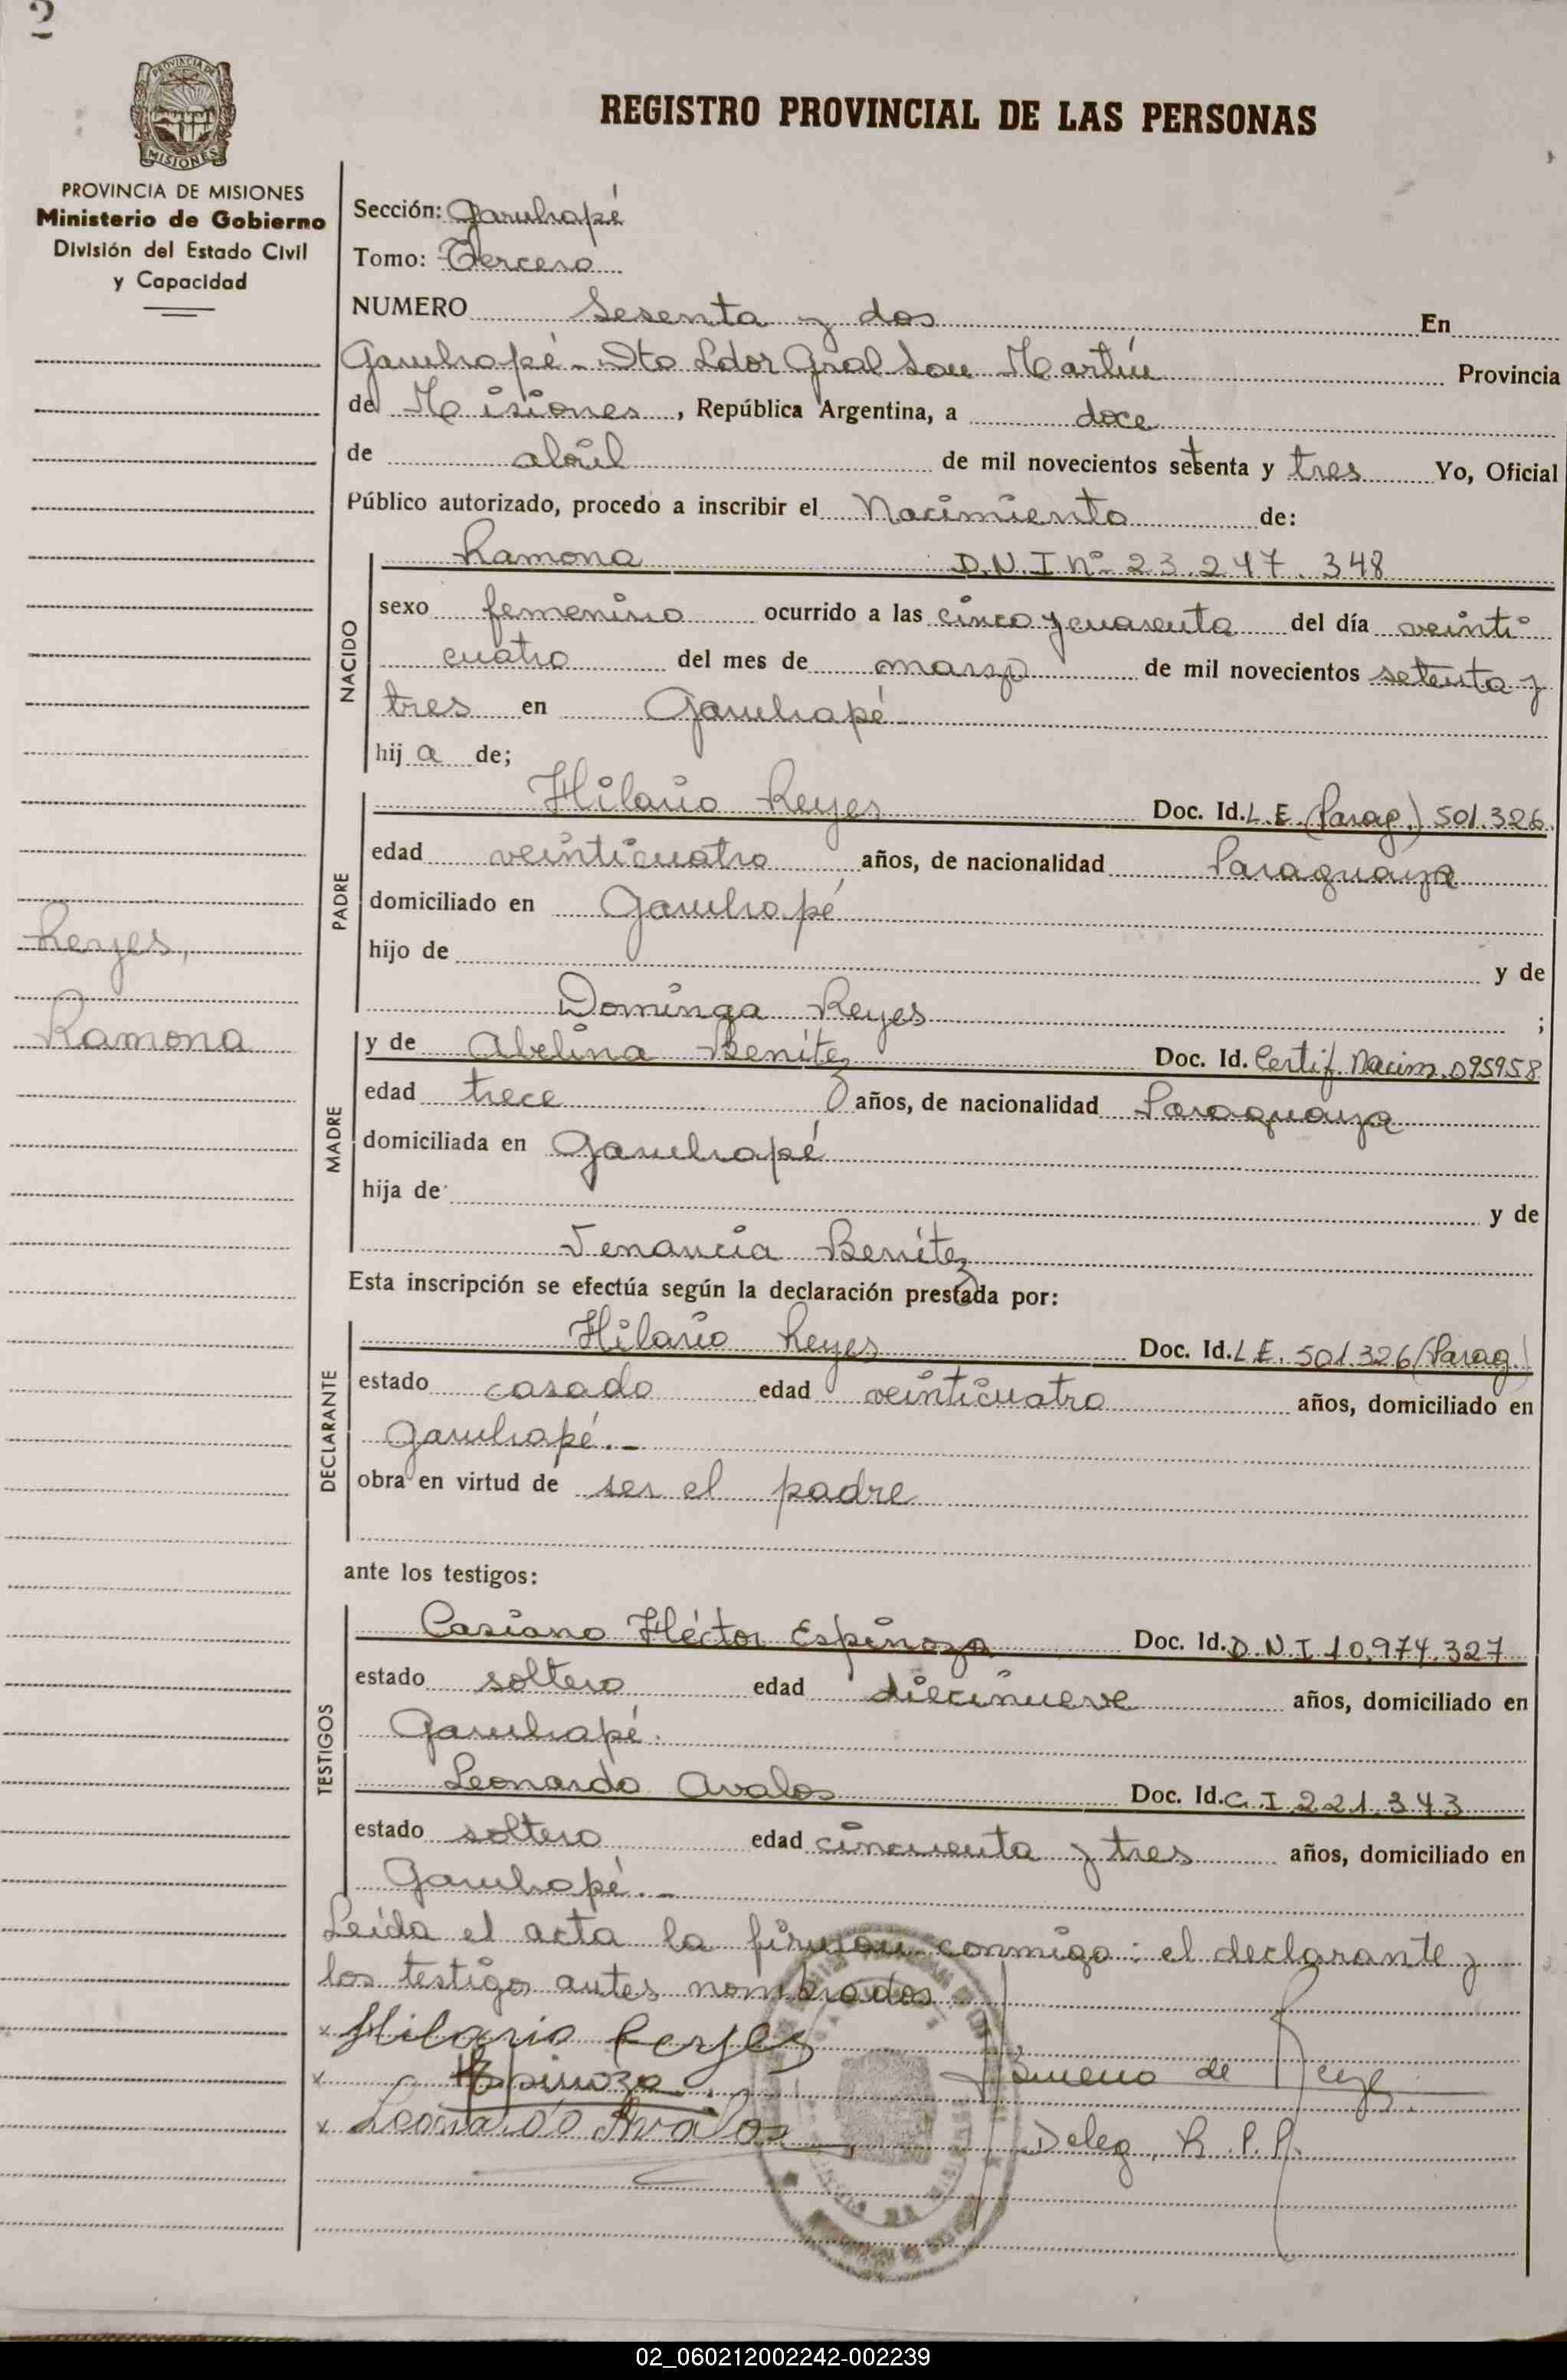 2
PROVINCIA DE
MISIONES
PROVINCIA DE MISIONES
Ministerio de Gobierno
División del Estado Civil
y Capacidad
Reyes,
Ramona
REGISTRO PROVINCIAL DE LAS PERSONAS
Sección: Garuhapé
Tomo: Tercero
NUMERO Sesenta y dos En
Garuhapé - Dto Ldor Gral San Martín Provincia
de Misiones, República Argentina, a doce
de abril de mil novecientos setenta y tres Yo, Oficial
Público autorizado, procedo a inscribir el Nacimiento de:
NACIDO
Ramona D.N.I nº 23.247.348
sexo femenino ocurrido a las cinco y cuarenta del día veinti
cuatro del mes de marzo de mil novecientos setenta y
tres en Garuhapé
hij a de;
PADRE
Hilario Reyes Doc. Id. L.E. (Parag.) 501.326
edad veinticuatro años, de nacionalidad Paraguaya
domiciliado en Garuhapé
hijo de y de
Dominga Reyes ;
MADRE
y de Abelina Benítez Doc. Id. Certif. Nacim. 095958
edad trece años, de nacionalidad Paraguaya
domiciliada en Garuhapé
hija de y de
Venancia Benítez
Esta inscripción se efectúa según la declaración prestada por:
DECLARANTE
Hilario Reyes Doc. Id. L.E. 501.326 (Parag.)
estado casado edad veinticuatro años, domiciliado en
Garuhapé.-
obra en virtud de ser el padre
ante los testigos:
TESTIGOS
Casiano Héctor Espinoza Doc. Id. D.N.I 10.974.327
estado soltero edad diecinueve años, domiciliado en
Garuhapé.
Leonardo Avalos Doc. Id. C.I 221.343
estado soltero edad cincuenta y tres años, domiciliado en
Garuhapé.-
Leída el acta la firman conmigo: el declarante y
los testigos antes nombrados
x Hilario Reyes
x Espinoza
x Leonardo Avalos
de
Deleg. R.P.P.
02_060212002242-002239